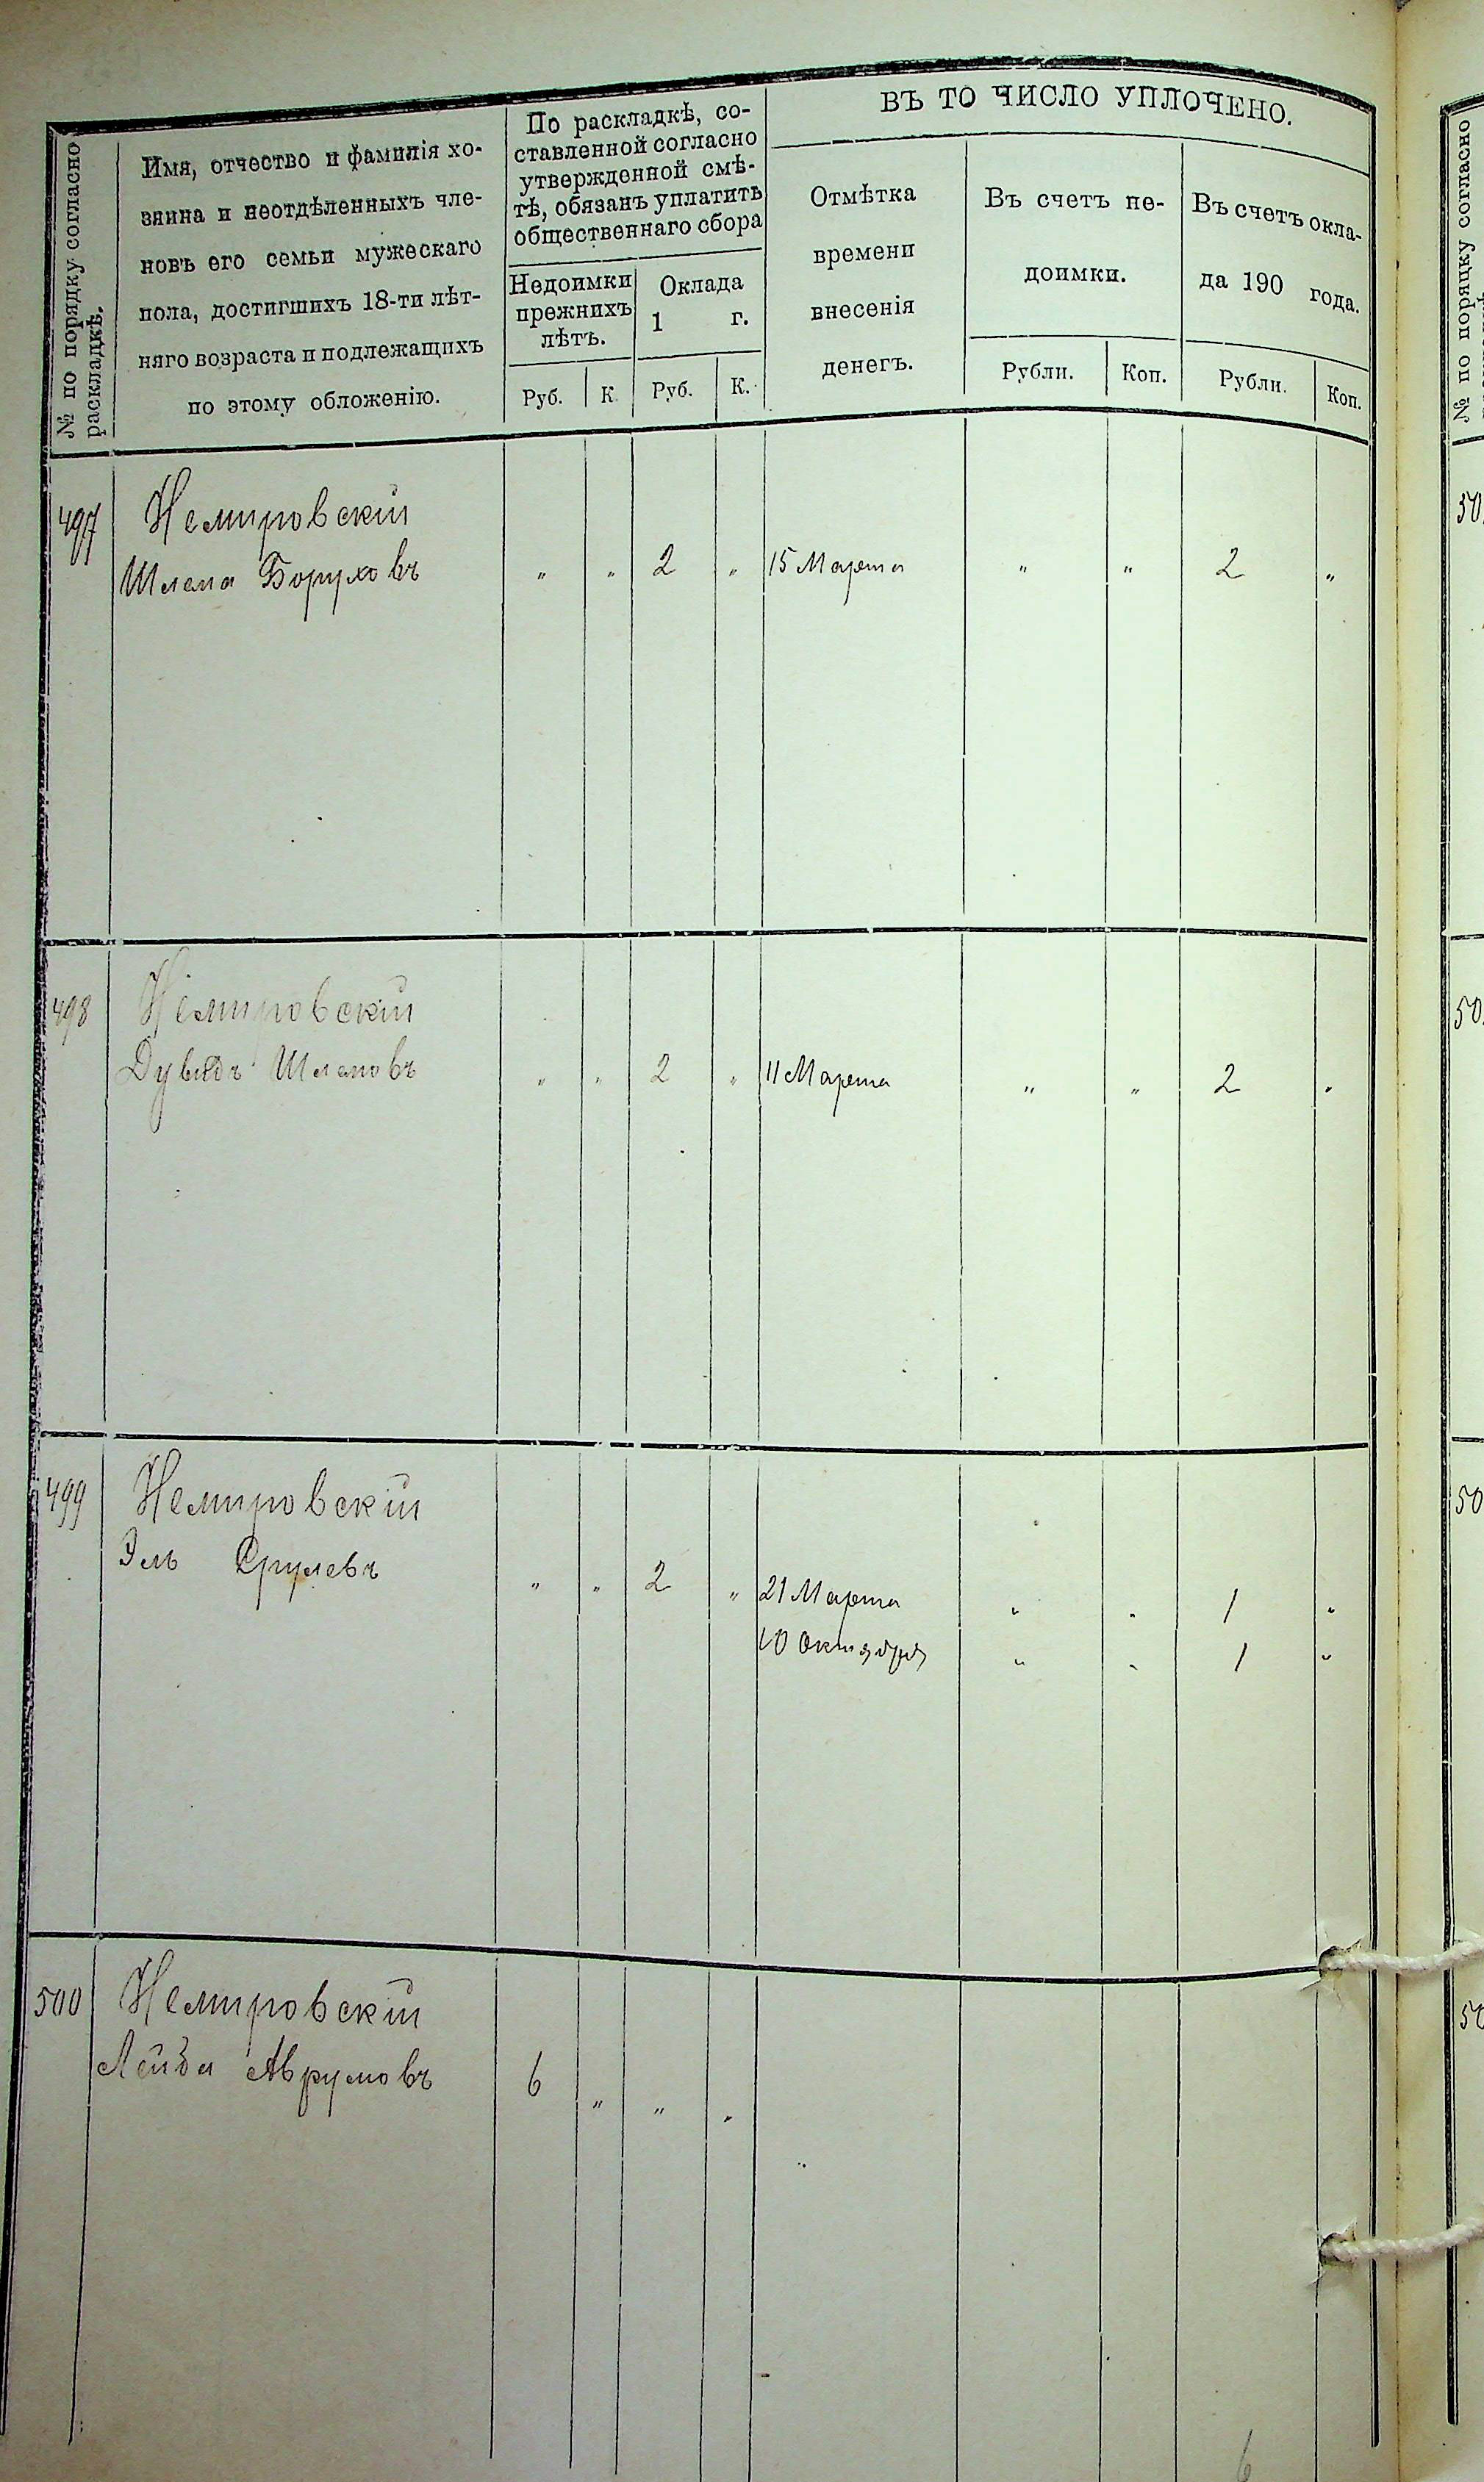 № по порядку согласно
раскладкѣ.
Имя, отчество и фамилія хо-
зяина и неотдѣленныхъ чле-
новъ его семьи мужескаго
пола, достигшихъ 18-ти лѣт-
няго возраста и подлежащихъ
по этому обложенію.
По раскладкѣ, со-
ставленной согласно
утвержденной смѣ-
тѣ, обязанъ уплатить
общественнаго сбора
Недоимки
прежнихъ
лѣтъ.
Оклада
1 г.
Руб. К. Руб. К.
ВЪ ТО ЧИСЛО УПЛОЧЕНО.
Отмѣтка
времени
внесенія
денегъ.
Въ счетъ не-
доимки.
Въ счетъ окла-
да 190 года.
Рубли. Коп. Рубли. Коп.
497 Немировскій
Шлема Боруховъ „ „ 2 „ 15 Марта „ „ 2 „
498 Немировскій
Дувидъ Шлемовъ „ „ 2 „ 11 Марта „ „ 2 „
499 Немировскій
Эль Срулевъ „ „ 2 „ 21 Марта „ „ 1 „
10 Октября „ „ 1 „
500 Немировскій
Лейба Аврумовъ 6 „ „ „
6
№ по порядку согласно